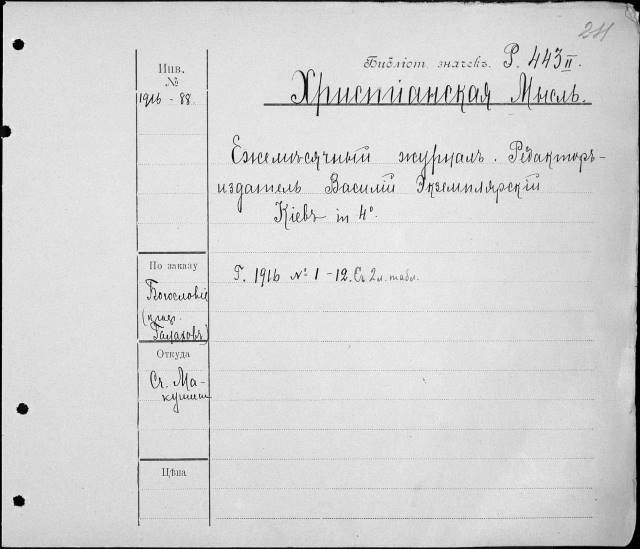 211
Библіот. значекъ. Р. 443 II.
Инв.
№
1916 - 88.
Христіанская Мысль.
Ежемѣсячный журналъ. Редакторъ-
издатель Василій Экземплярскій
Кіевъ in 4°.
По заказу
Богословіе
Г. 1916 № 1 - 12. Съ 2 л. табл.
Откуда
Цѣна